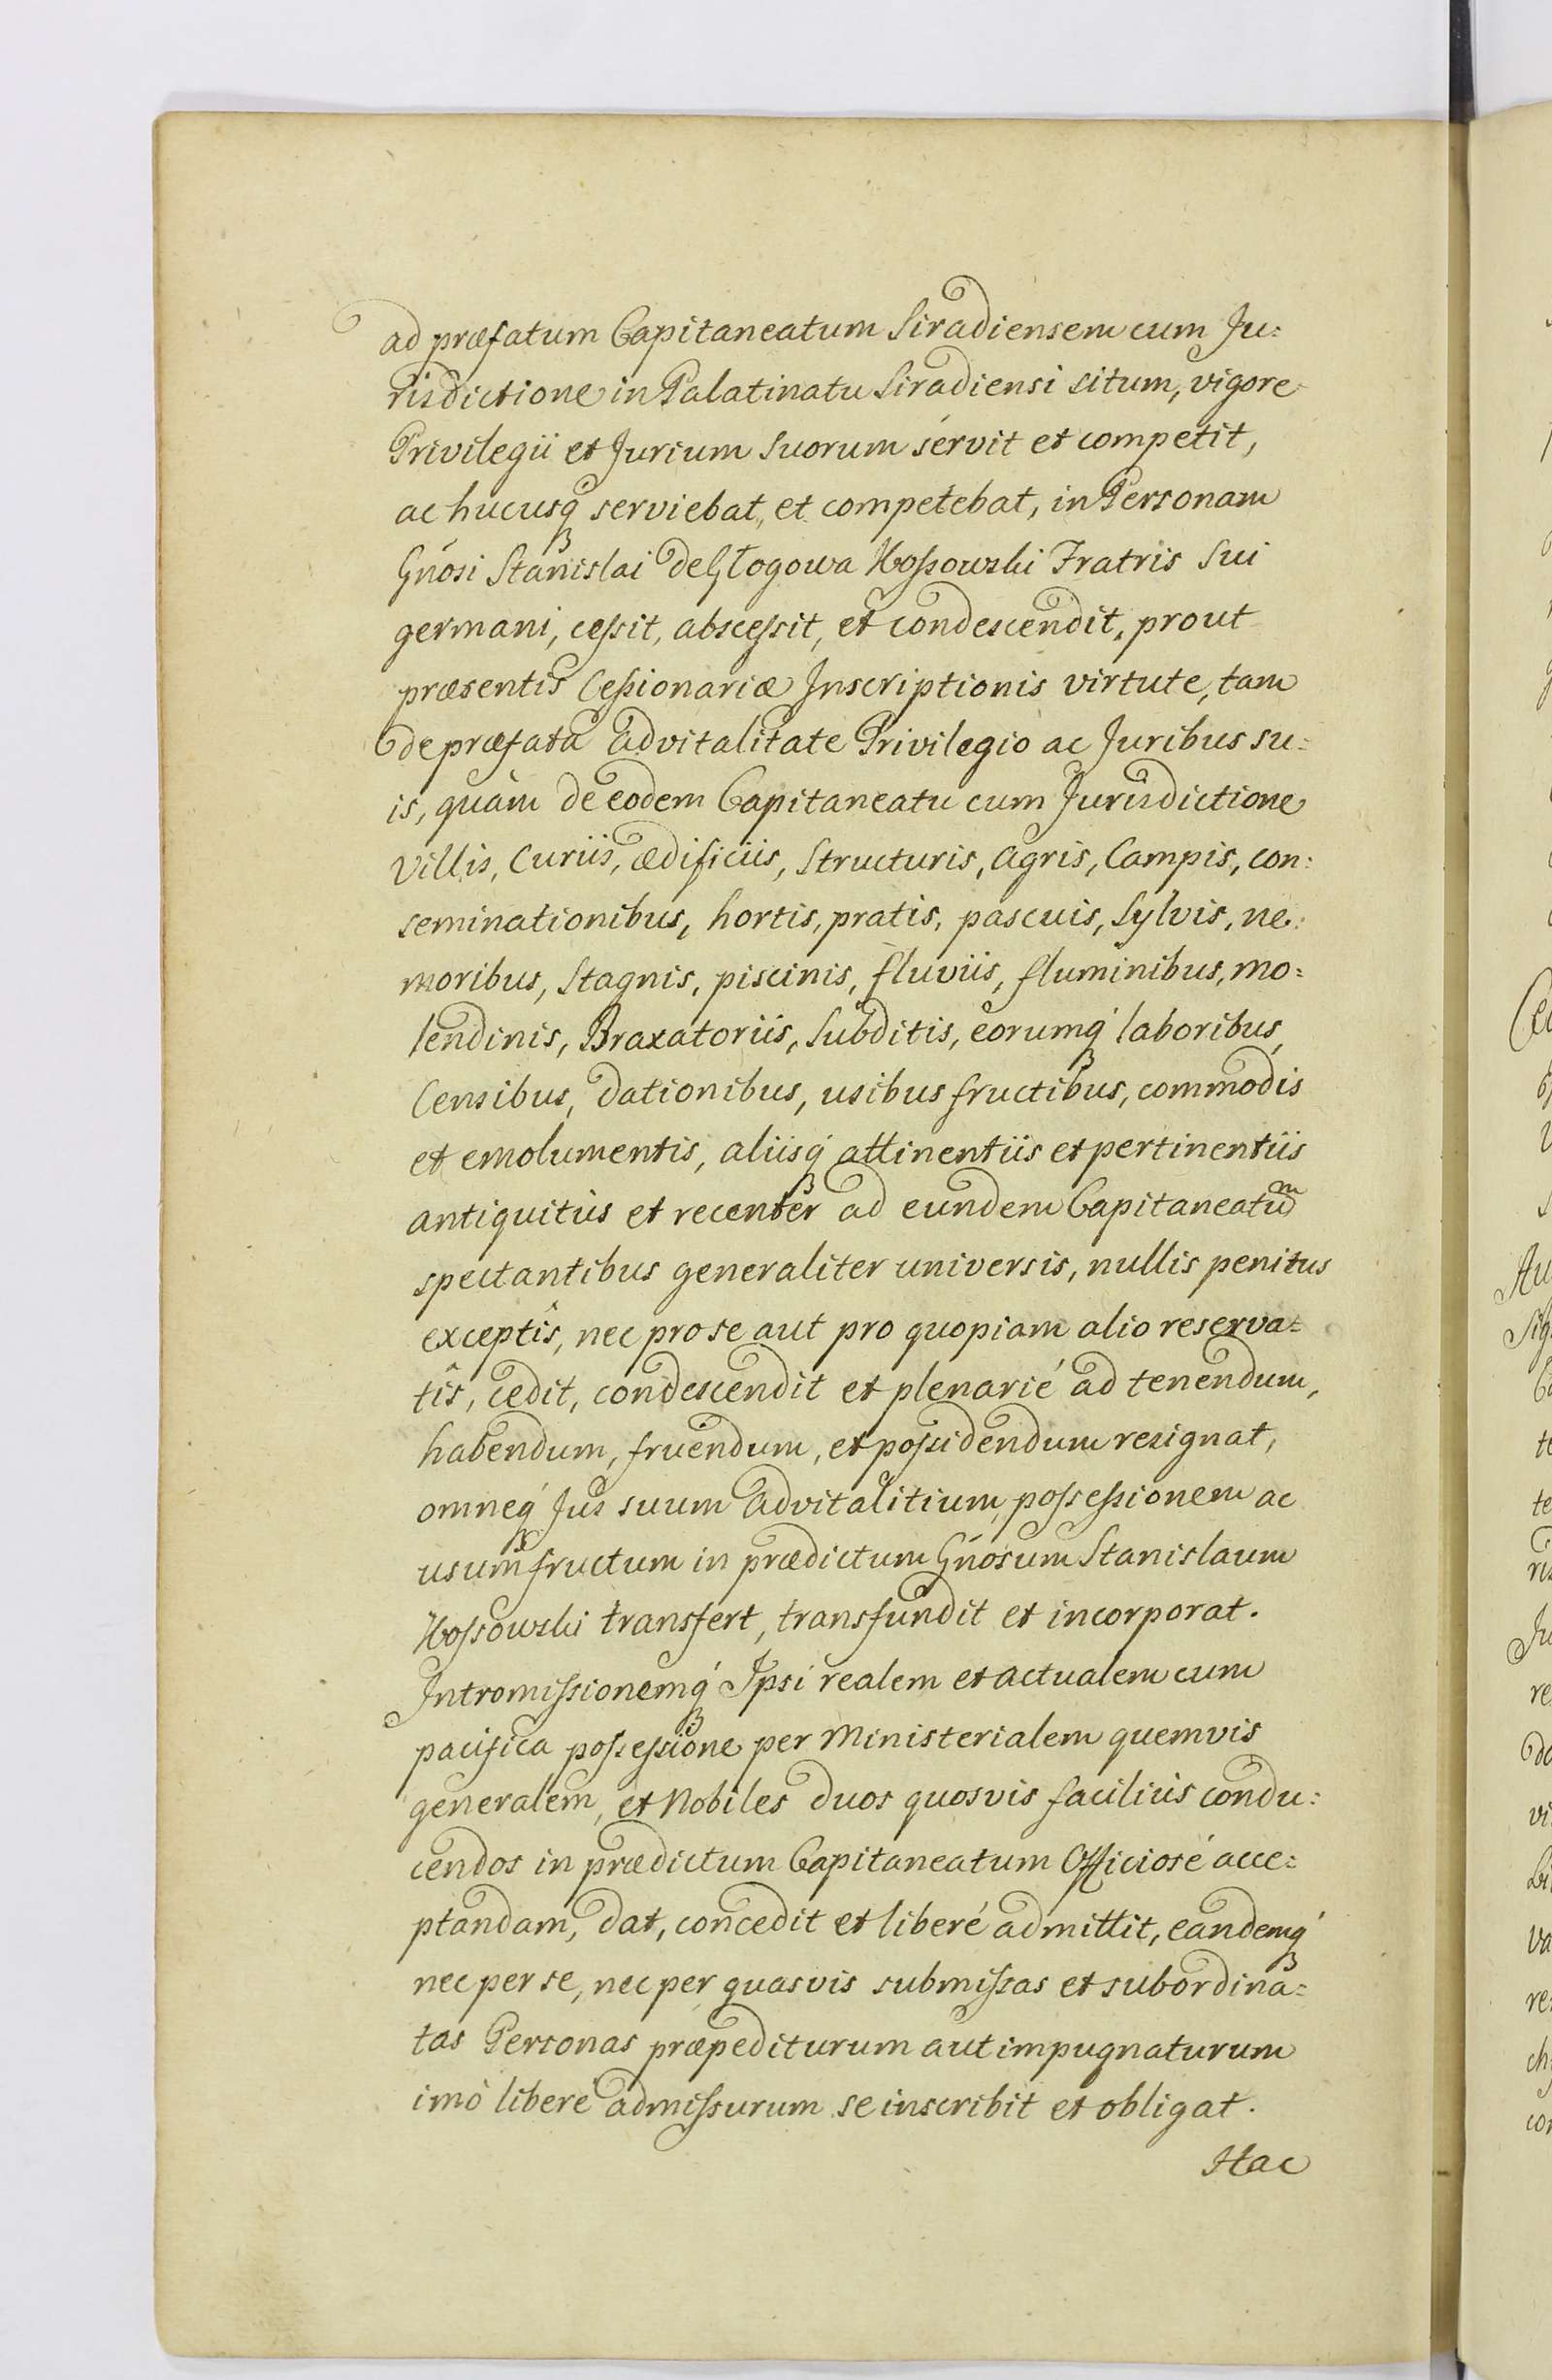 ad præfatum Capitaneatum Siradiensem cum Ju:
risdictione in Palatinatu Siradiensi situm, vigore
Privilegii et Jurium suorum servit et competit,
ac hucusq₃ serviebat, et competebat, in Personam
Gnõsi Stanislai de Głogowa Kossowski Fratris sui
germani, cessit, abscessit, et condescendit, prout
præsentis Cessionariæ Inscriptionis virtute, tam
de præfata advitalitate Privilegio ac Juribus su:
is, quàm de eodem Capitaneatu cum Jurisdictione
Villis, Curiis, ædificiis, Structuris, agris, Campis, con:
seminationibus, hortis, pratis, pascuis, Sylvis, ne:
moribus, Stagnis, piscinis, fluviis, fluminibus, mo:
lendinis, Braxatoriis, Subditis, eorumq́₃ laboribus,
Censibus, dationibus, usibus fructibus, commodis
et emolumentis, aliisq́₃ attinentiis et pertinentiis
antiquitùs et recenter ad eundem Capitaneatuᵐ
spectantibus generaliter universis, nullis penitus
exceptîs, nec pro se aut pro quopiam alio reserva:
tîs, cedit, condescendit et plenarié ad tenendum,
habendum, fruendum, et possidendum resignat,
omneq́₃ Jus suum advitalitium, possessionem ac
usumfructum in prædictum Gnõsum Stanislaum
Kossowski transfert, transfundit et incorporat.
Intromissionemq́₃ Ipsi realem et actualem cum
pacifica possessione per Ministerialem quemvis
generalem, et Nobiles duos quosvis faciliùs condu:
cendos in prædictum Capitaneatum Officiosé acce:
ptandam, dat, concedit et liberé admittit, eandemq́₃
nec per se, nec per quasvis submissas et subordina:
tas Personas præpediturum aut impugnaturum
imò liberé admissurum se inscribit et obligat.
Hac